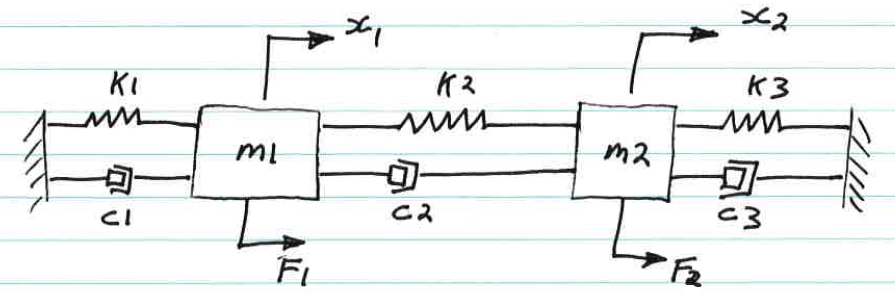 x1 x2
K1 K2 K3
m1 m2
C1 C2 C3
F1 F2